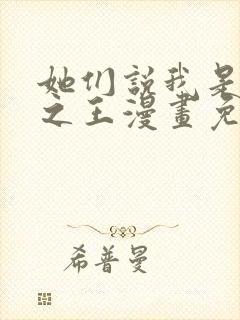 她们説我是
之王漫畫免
希普曼